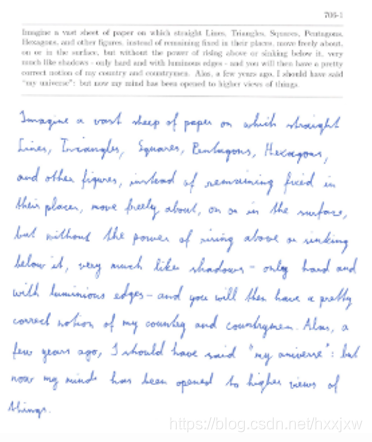 708-1
Imagine a vast sheet of paper on which straight Lines, Triangles, Squares, Pentagons,
Hexagons, and other figures, instead of remaining fixed in their places, move freely about,
on or in the surface, but without the power of rising above or sinking below it, very
much like shadows - only hard and with luminous edges - and you will then have a pretty
correct notion of my country and countrymen. Alas, a few years ago, I should have said
"my universe": but now my mind has been opened to higher views of things.
Imagine a vast sheep of paper on which straight
Lines, Triangles, Squares, Pentagons, Hexagons,
and other figures, instead of remaining fixed in
their places, move freely about, on or in the surface,
but without the power of rising above or sinking
below it, very much like shadows - only hard and
with luminious edges - and you will then have a pretty
correct notion of my country and countrymen. Alas, a
few years ago, I should have said "my universe": but
now my mind has been opened to higher views of
things.
https://blog.csdn.net/hxxjxw